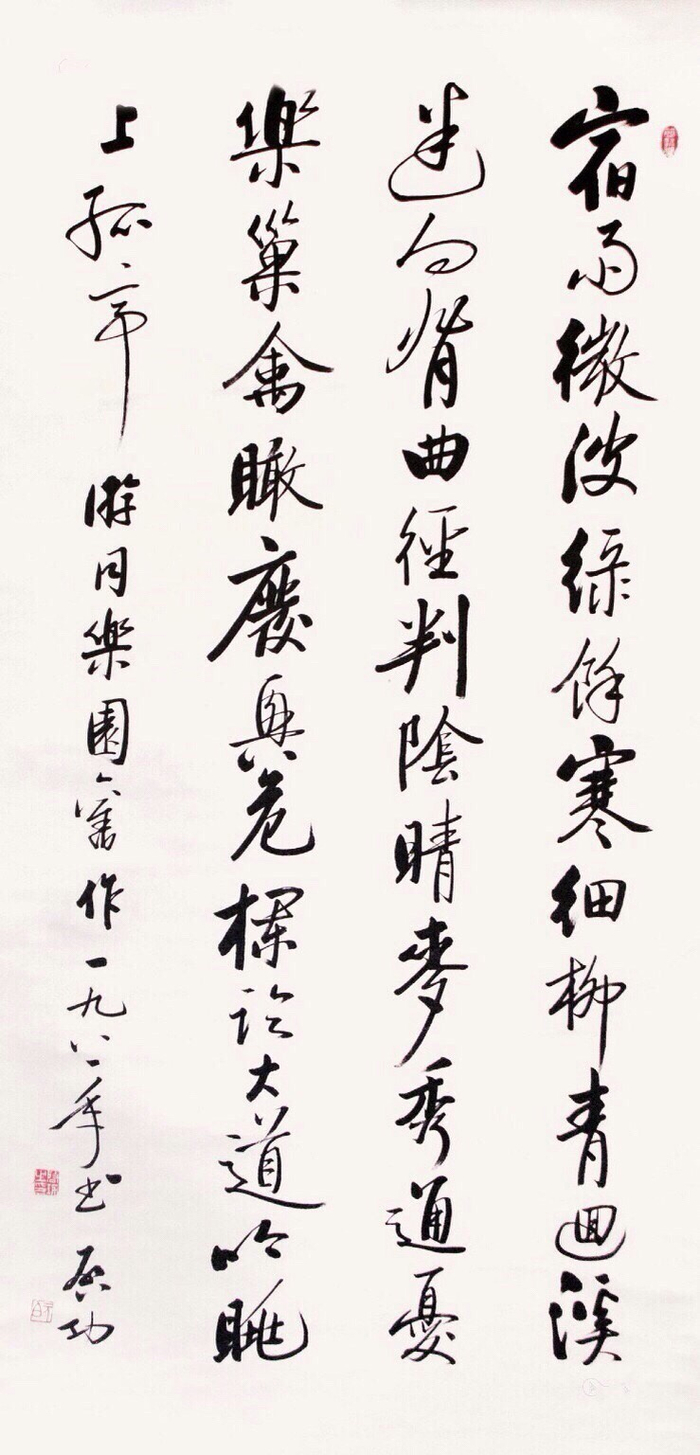 宿雨微波綠餘寒細柳青迴溪
迷向背曲徑判陰晴麥秀通憂
樂巢禽瞰廢興危欄論大道吟眺
上孤亭 游同樂園舊作一九八一年書 启功